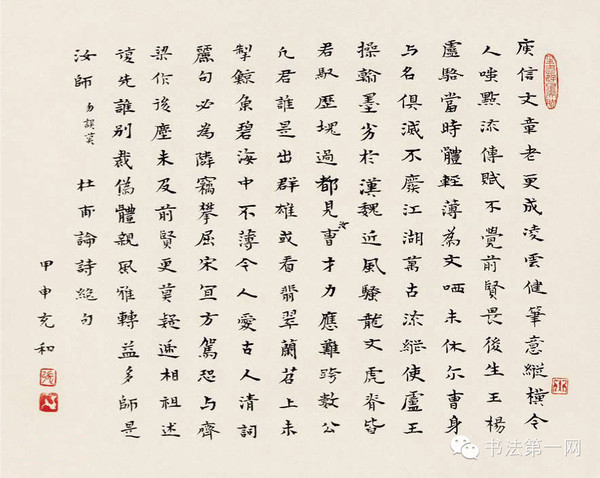 庾信文章老更成凌雲健筆意縱橫今
人嗤點流傳賦不覺前賢畏後生王楊
盧駱當時體輕薄為文哂未休尔曹身
与名俱滅不廢江湖萬古流縱使盧王
操翰墨劣於漢魏近風騷龍文虎脊皆
君馭歷塊過都見汝曹才力應難跨數公
凡君誰是出群雄或看翡翠蘭苕上未
掣鯨魚碧海中不薄今人愛古人清詞
麗句必為隣竊攀屈宋宜方駕恐与齊
梁作後塵未及前賢更莫疑遞相祖述
復先誰別裁偽體親風雅轉益多師是
汝師 誤莫 杜甫論詩絕句
甲申充和
张
书法第一网